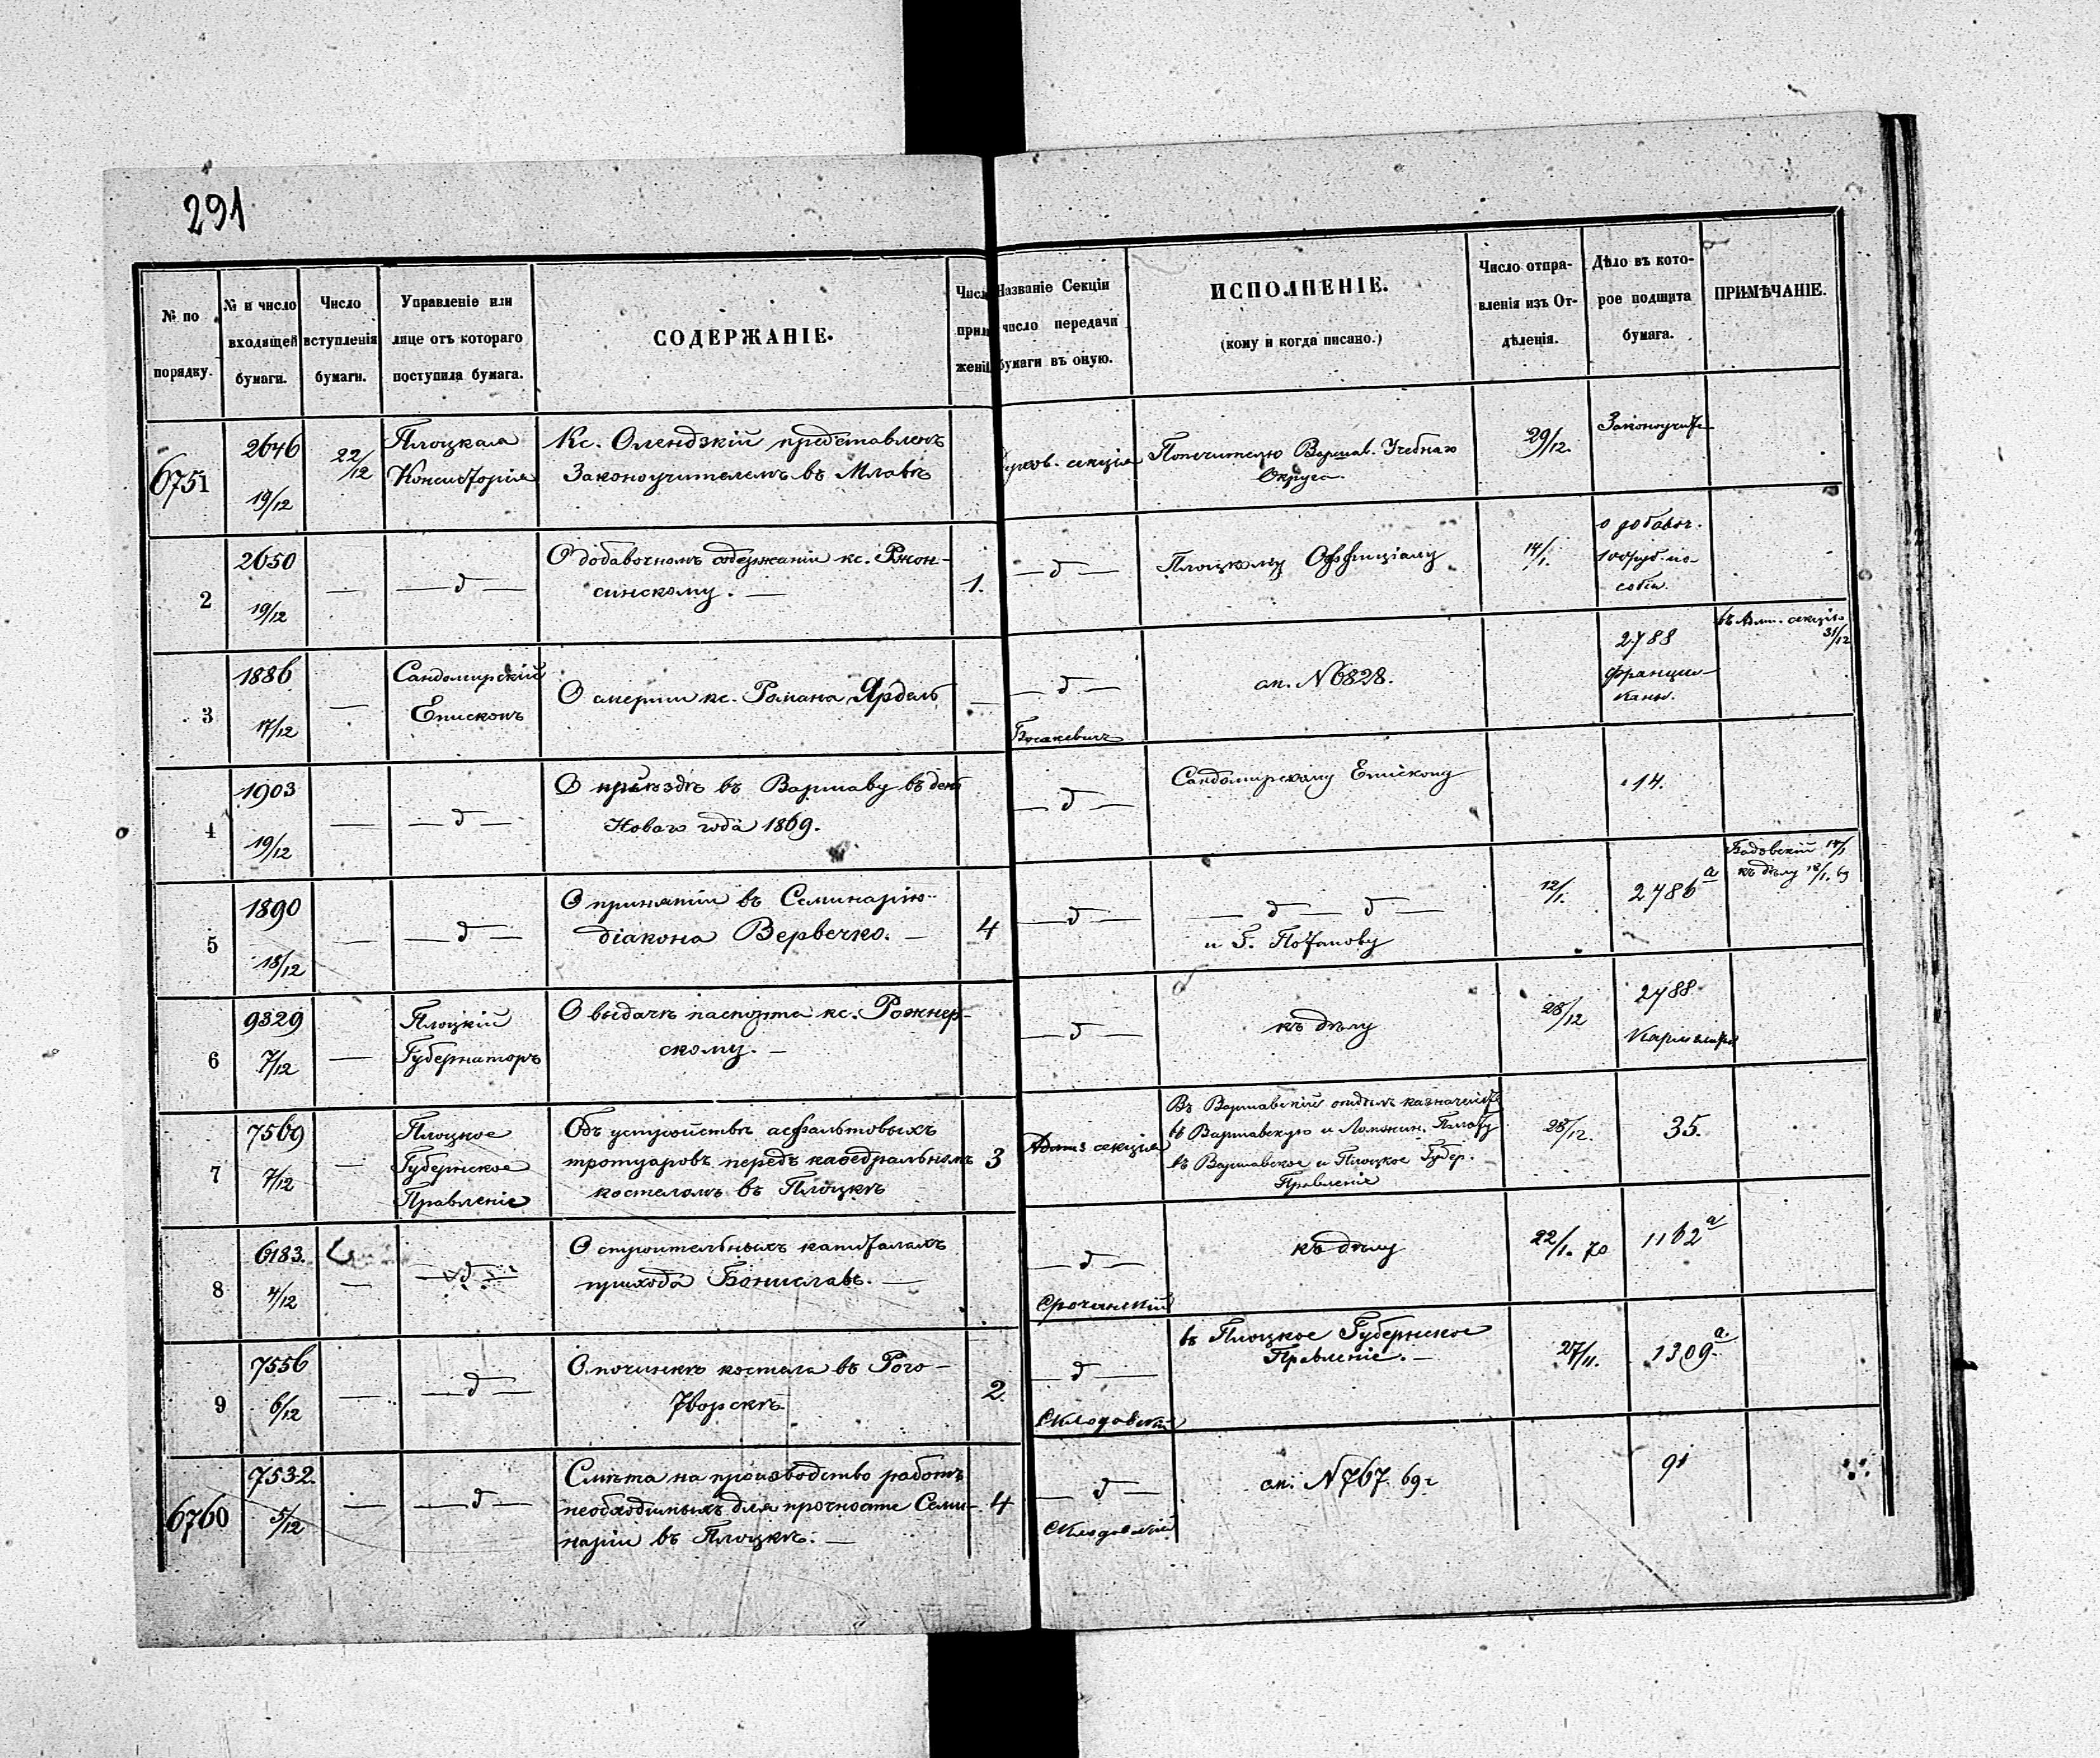 291
№ по порядку.
№ и число входящей бумаги.
Число вступленія бумаги.
Управленіе или лице отъ котораго поступила бумага.
СОДЕРЖАНІЕ.
Числ прил женій
Названіе Секціи число передачи бумаги въ оную.
ИСПОЛНЕНІЕ.
(кому и когда писано.)
Число отпра-
вленія изъ От-
дѣленія.
Дѣло въ кото-
рое подшита
бумага.
ПРИМѢЧАНІЕ.
6751
2646
19/12
22/12
Плоцкая
Консисторія
Кс. Олендзкій представленъ
Законоучителемъ въ Млавѣ
Духов. секція
Попечителю Варшав. Учебнаго
Округа.
29/12.
Законоучите
2
2650
19/12
—
— д —
О добавочномъ содержаніи кс. Ржон-
синскому. —
1.
— д —
Плоцкому Оффиціалу
14/1.
о добавоч.
100 руб. по-
собіи.
3
1886
17/12
—
Сандомирскій
Епископъ
О смерти кс. Романа Ярдель
—
— д —
сл. N 6828.
2788
Францис-
каны.
въ Адм. секцію
31/12
4
1903
19/12
—
— д —
О пріѣздѣ въ Варшаву въ день
Новаго года 1869.
— д —
Сандомирскому Епископу
14.
5
1890
18/12
—
— д —
О принятіи въ Семинарію
діакона Вервечко. —
4
— д —
— д — д —
и Г. Потапову
12/1.
2786 а
14/1
къ дѣлу 18/1. 69
6
9329
7/12
—
Плоцкій
Губернаторъ
О выдачѣ паспорта кс. Рожнер-
скому. —
— д —
къ дѣлу
28/12
2788
7
7569
7/12
—
Плоцкое
Губернское
Правленіе
Объ устройствѣ асфальтовыхъ
тротуаровъ передъ каѳедральномъ
костеломъ въ Плоцкѣ
3
секція
Въ Варшавскій отдѣлъ казначейст
въ Варшавскую и Ломжин. Палату
въ Варшавское и Плоцкое Губер.
Правленіе
28/12.
35.
8
6183.
4/12
—
— д —
О строительныхъ капиталахъ
прихода Бониславъ. —
— д —
къ дѣлу
22/1. 70
1162 а
9
7556
6/12
—
— д —
О починкѣ костела въ Рого-
творскѣ
2.
— д —
въ Плоцкое Губернское
Правленіе. —
27/11.
1309 а.
6760
7532.
5/12
—
— д —
Смѣта на производство работъ
необходимыхъ для прочности Семи-
наріи въ Плоцкѣ. —
4
— д —
сл. N 767. 69 г
91